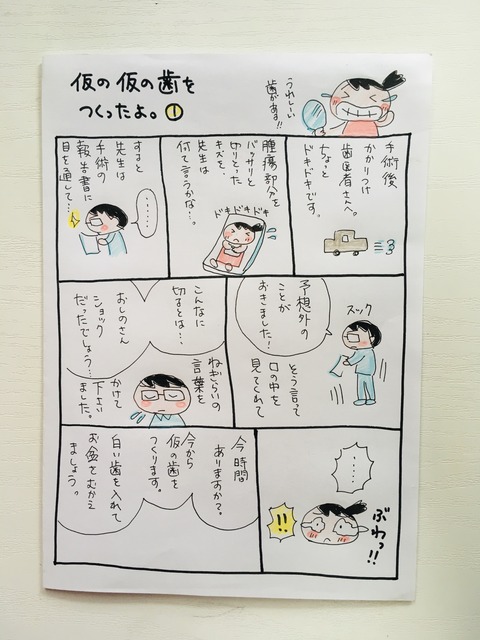 仮の仮の歯を
つくったよ。①
うれしーい
歯がある!!
手術後
かかりつけ
歯医者さんへ。
ちょっと
ドキドキです。
腫瘍部分を
バッサリと
切りとった
キズを、
先生は
何て言うかな…。
ドキドキドキ
すると
先生は
手術の
報告書に
目を通して…
……
予想外の
ことが
おきました!
スック
そう言って
口の中を
見てくれて
こんなに
切るとは…
おしのさん
ショック
だったでしょう…
ねぎらいの
言葉を
かけて
下さい
ました。
……
ぶわっ!!
!!
今時間
ありますか?
今から
仮の歯を
つくります。
白い歯を入れて
お盆をむかえ
ましょう。